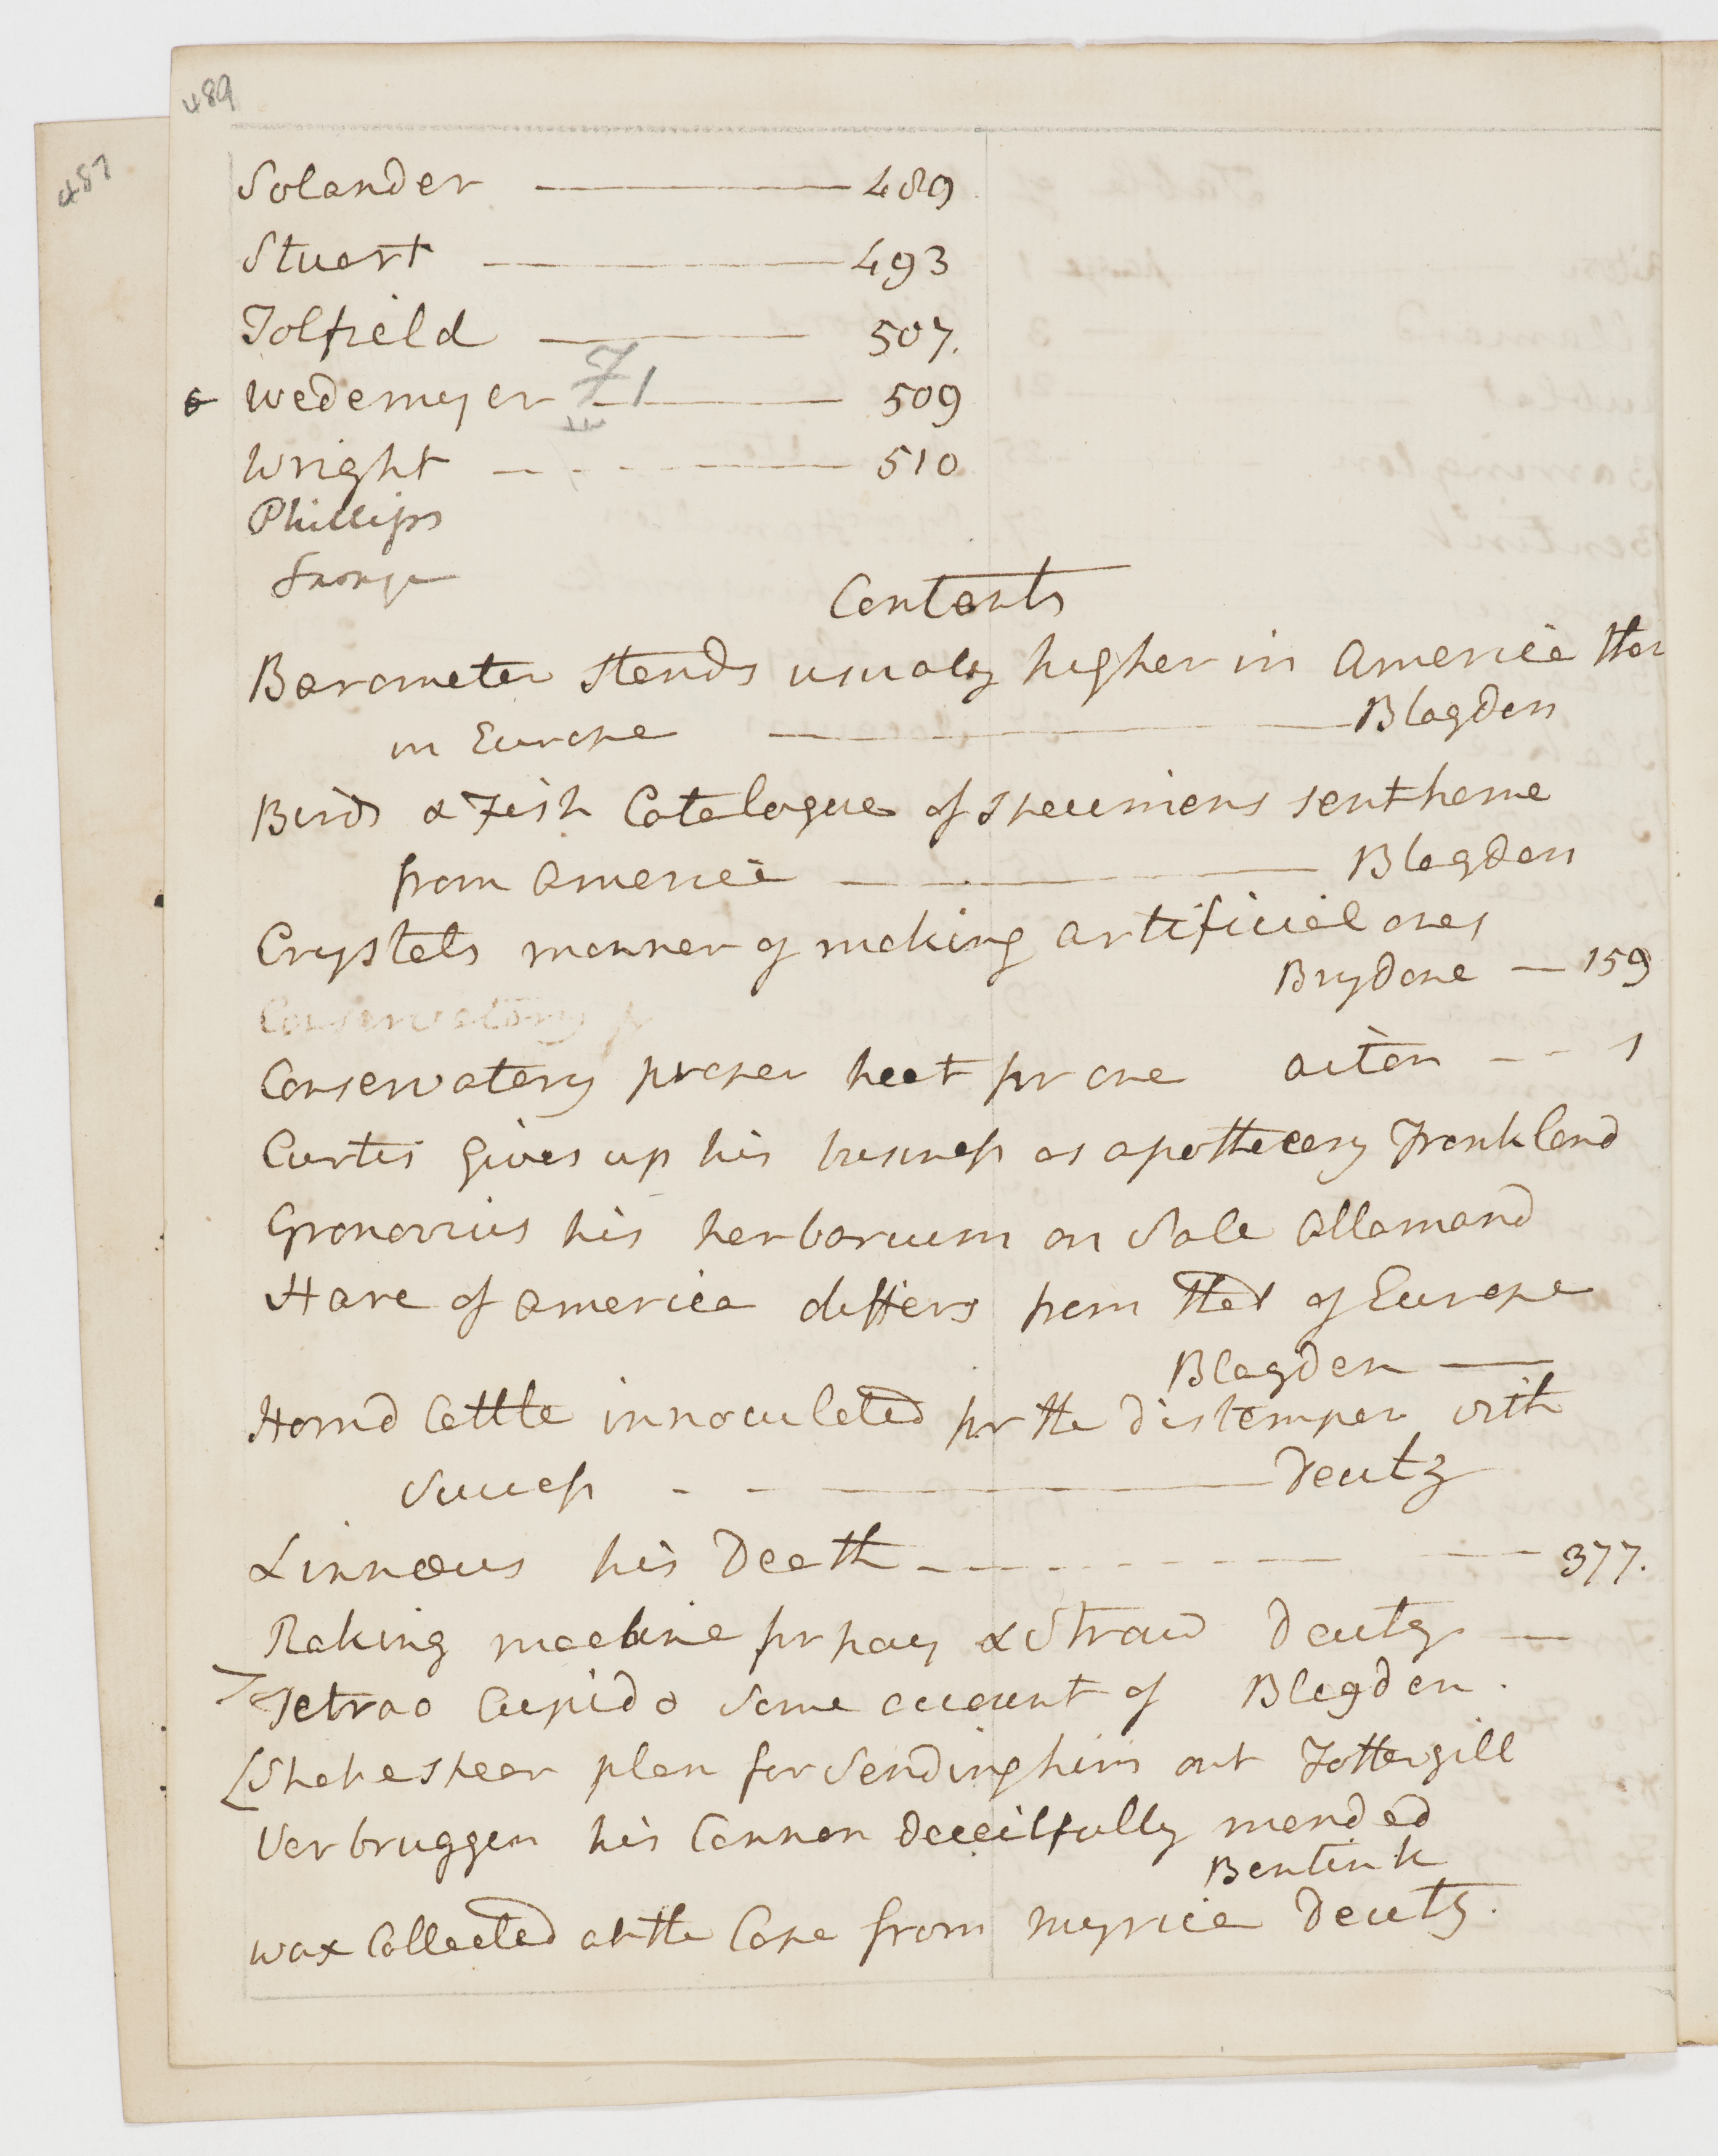 489
487
Solander — 489
Stuart — 493
Tolfield — 507.
Wedemyer — 509
Wright - - - — 510
Phillips
Contents
Barometer stands usualy higher in America than
in Europe — Blagden
Birds & Fish Catalogue of specimens sent home
from America — Blagden
Crystals manner of making artificial ones
Brydone — 159
Conservatory
Conservatory proper heat for one Aiton - - 1
Curtis gives up his business as apothecary Frankland
Gronovius his herbarium on Sale Allamand
Hare of America differs from that of Europe
Blagden —
Hornd Cattle innoculated for the distemper with
Success - - — Deutz
Linnæus his Death - - - - - - — 377.
Raking machine for hay & Straw Deutz —
Tetrao Cupido Some account of Blagden.
[Shakespear plan for Sending him out Fothergill
Verbruggen his Cannon deceitfully mended
Bentink
wax Collected at the Cape from myrica Deutz.